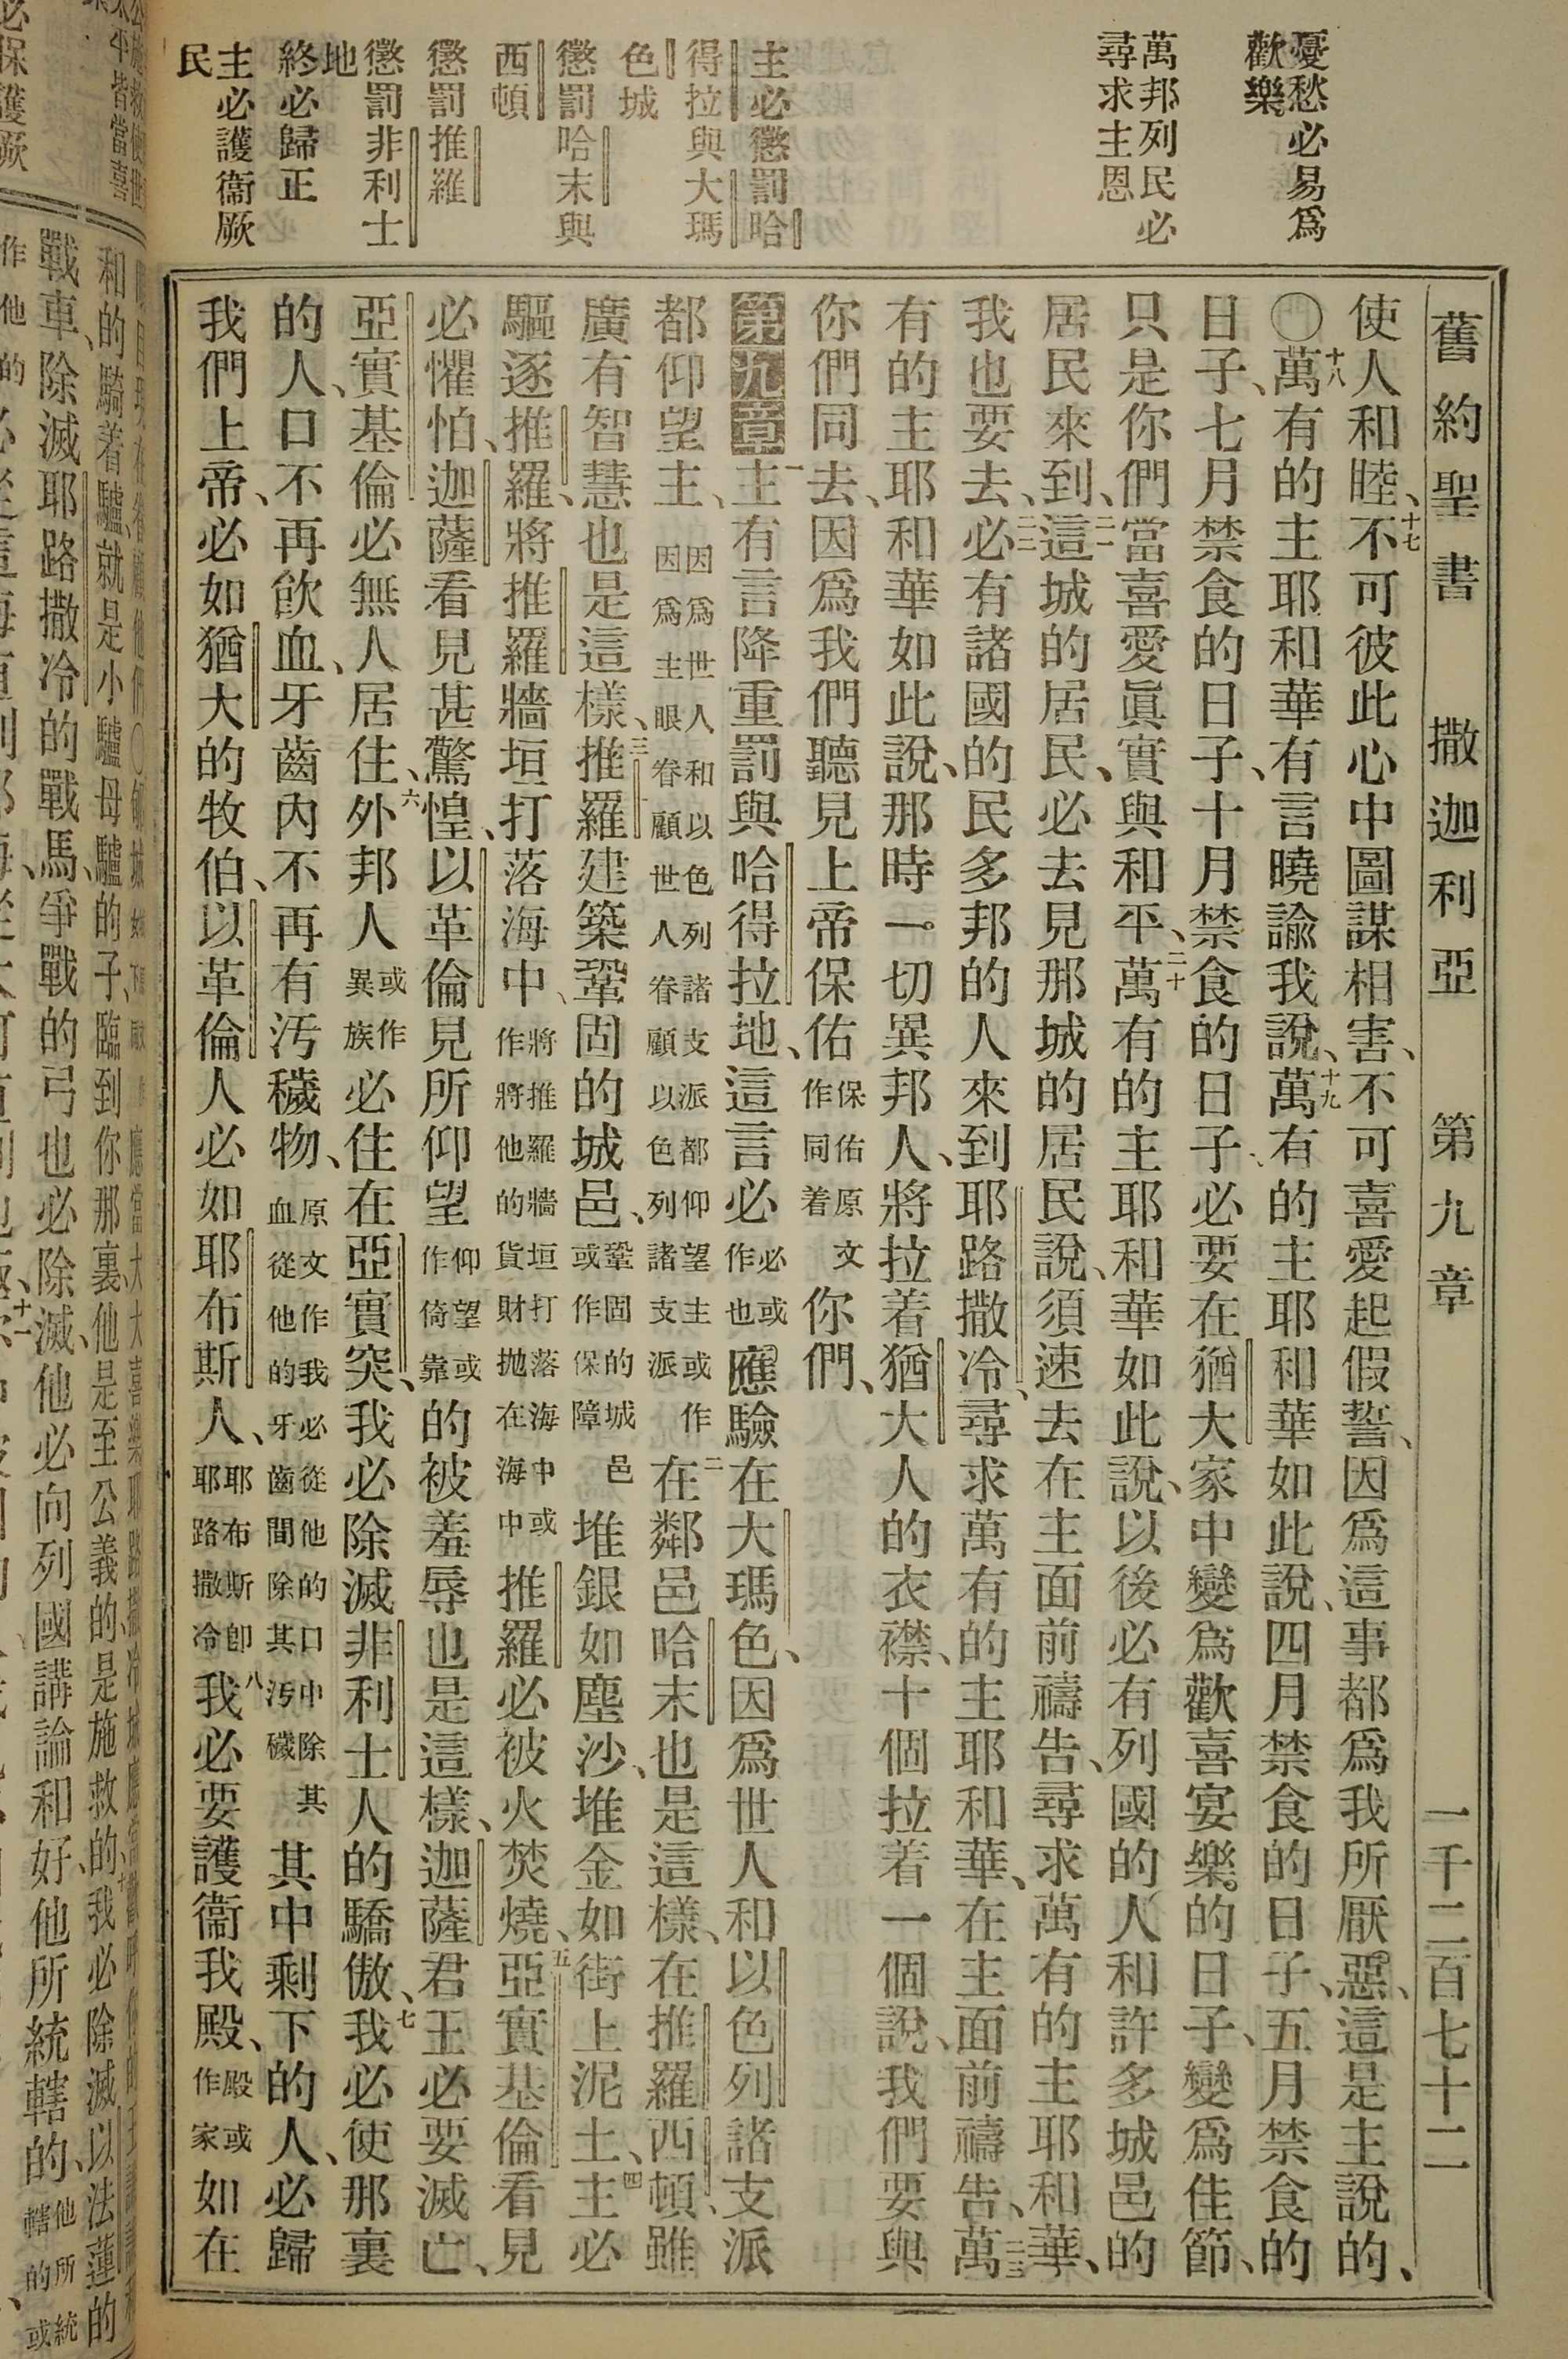 舊約聖書 撒迦利亞 第九章 一千二百七十二
憂愁必易爲
歡樂
萬邦列民必
尋求主恩
主必懲罰哈
得拉與大瑪
色城
懲罰哈末與
西頓
懲罰推羅
懲罰非利士
地
終必歸正
主必護衞厥
民
使人和睦、十七不可彼此心中圖謀相害、不可喜愛起假誓、因爲這事都爲我所厭惡、這是主說的、
〇十八萬有的主耶和華有言曉諭我說、十九萬有的主耶和華如此說、四月禁食的日子、五月禁食的
日子、七月禁食的日子、十月禁食的日子、必要在猶大家中變爲歡喜宴樂的日子、變爲佳節、
只是你們當喜愛眞實與和平、二十萬有的主耶和華如此說、以後必有列國的人、和許多城邑的
居民來到、二一這城的居民、必去見那城的居民說、須速去在主面前禱告、尋求萬有的主耶和華、
我也要去、二二必有諸國的民多邦的人來到耶路撒冷、尋求萬有的主耶和華、在主面前禱告、二三萬
有的主耶和華如此說、那時一切異邦人、將拉着猶大人的衣襟、十個拉着一個說、我們要與
你們同去、因爲我們聽見上帝保佑保佑原文作同着你們、
第九章 一主有言降重罰與哈得拉地、這言必必或作也應驗在大瑪色、因爲世人和以色列諸支派
都仰望主、因爲世人和以色列諸支派都仰望主或作因爲主眼眷顧世人眷顧以色列諸支派二在鄰邑哈末也是這樣、在推羅西頓、雖
廣有智慧也是這樣、三推羅建築鞏固的城邑、鞏固的城邑或作保障堆銀如塵沙、堆金如街上泥土、四主必
驅逐推羅、將推羅牆垣打落海中、將推羅牆垣打落海中或作將他的貨財抛在海中推羅必被火焚燒、五亞實基倫看見
必懼怕、迦薩看見甚驚惶、以革倫見所仰望仰望或作倚靠的被羞辱也是這樣、迦薩君王必要滅亡、
亞實基倫必無人居住、六外邦人或作異族必住在亞實突、我必除滅非利士人的驕傲、七我必使那裏
的人、口不再飲血、牙齒內不再有汚穢物、原文作我必從他的口中除其血從他的牙齒間除其汚穢其中剩下的人、必歸
我們上帝、必如猶大的牧伯、以革倫人必如耶布斯人、耶布斯卽耶路撒冷八我必要護衞我殿、殿或作家如在
和的騎着驢、就是小驢母驢的子、臨到你那裏、他是至公義的、是施救的、十我必除滅以法蓮的
戰車、除滅耶路撒冷的戰馬、爭戰的弓也必除滅、他必向列國講論和好、他所統轄的、他所統轄的或